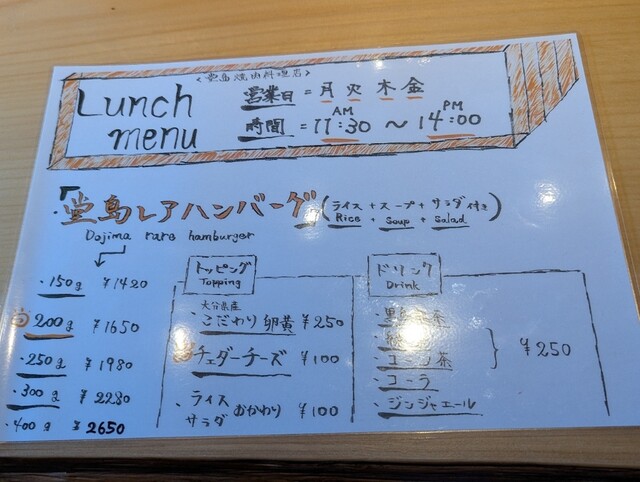 <堂島焼肉料理店>
Lunch menu
営業日 = 月 火 木 金
時間 = 11:30 AM ~ 14:00 PM
「堂島レアハンバーグ」(ライス+スープ+サラダ付き)
Rice + Soup + Salad
Dojima rare hamburger
・150g ¥1420
200g ¥1650
・250g ¥1980
・300g ¥2280
・400g ¥2650
トッピング
Topping
大分県産
・こだわり卵黄 ¥250
チェダーチーズ ¥100
・ライス サラダ おかわり ¥100
ドリンク
Drink
茶
茶
・コーラ
・ジンジャエール
} ¥250